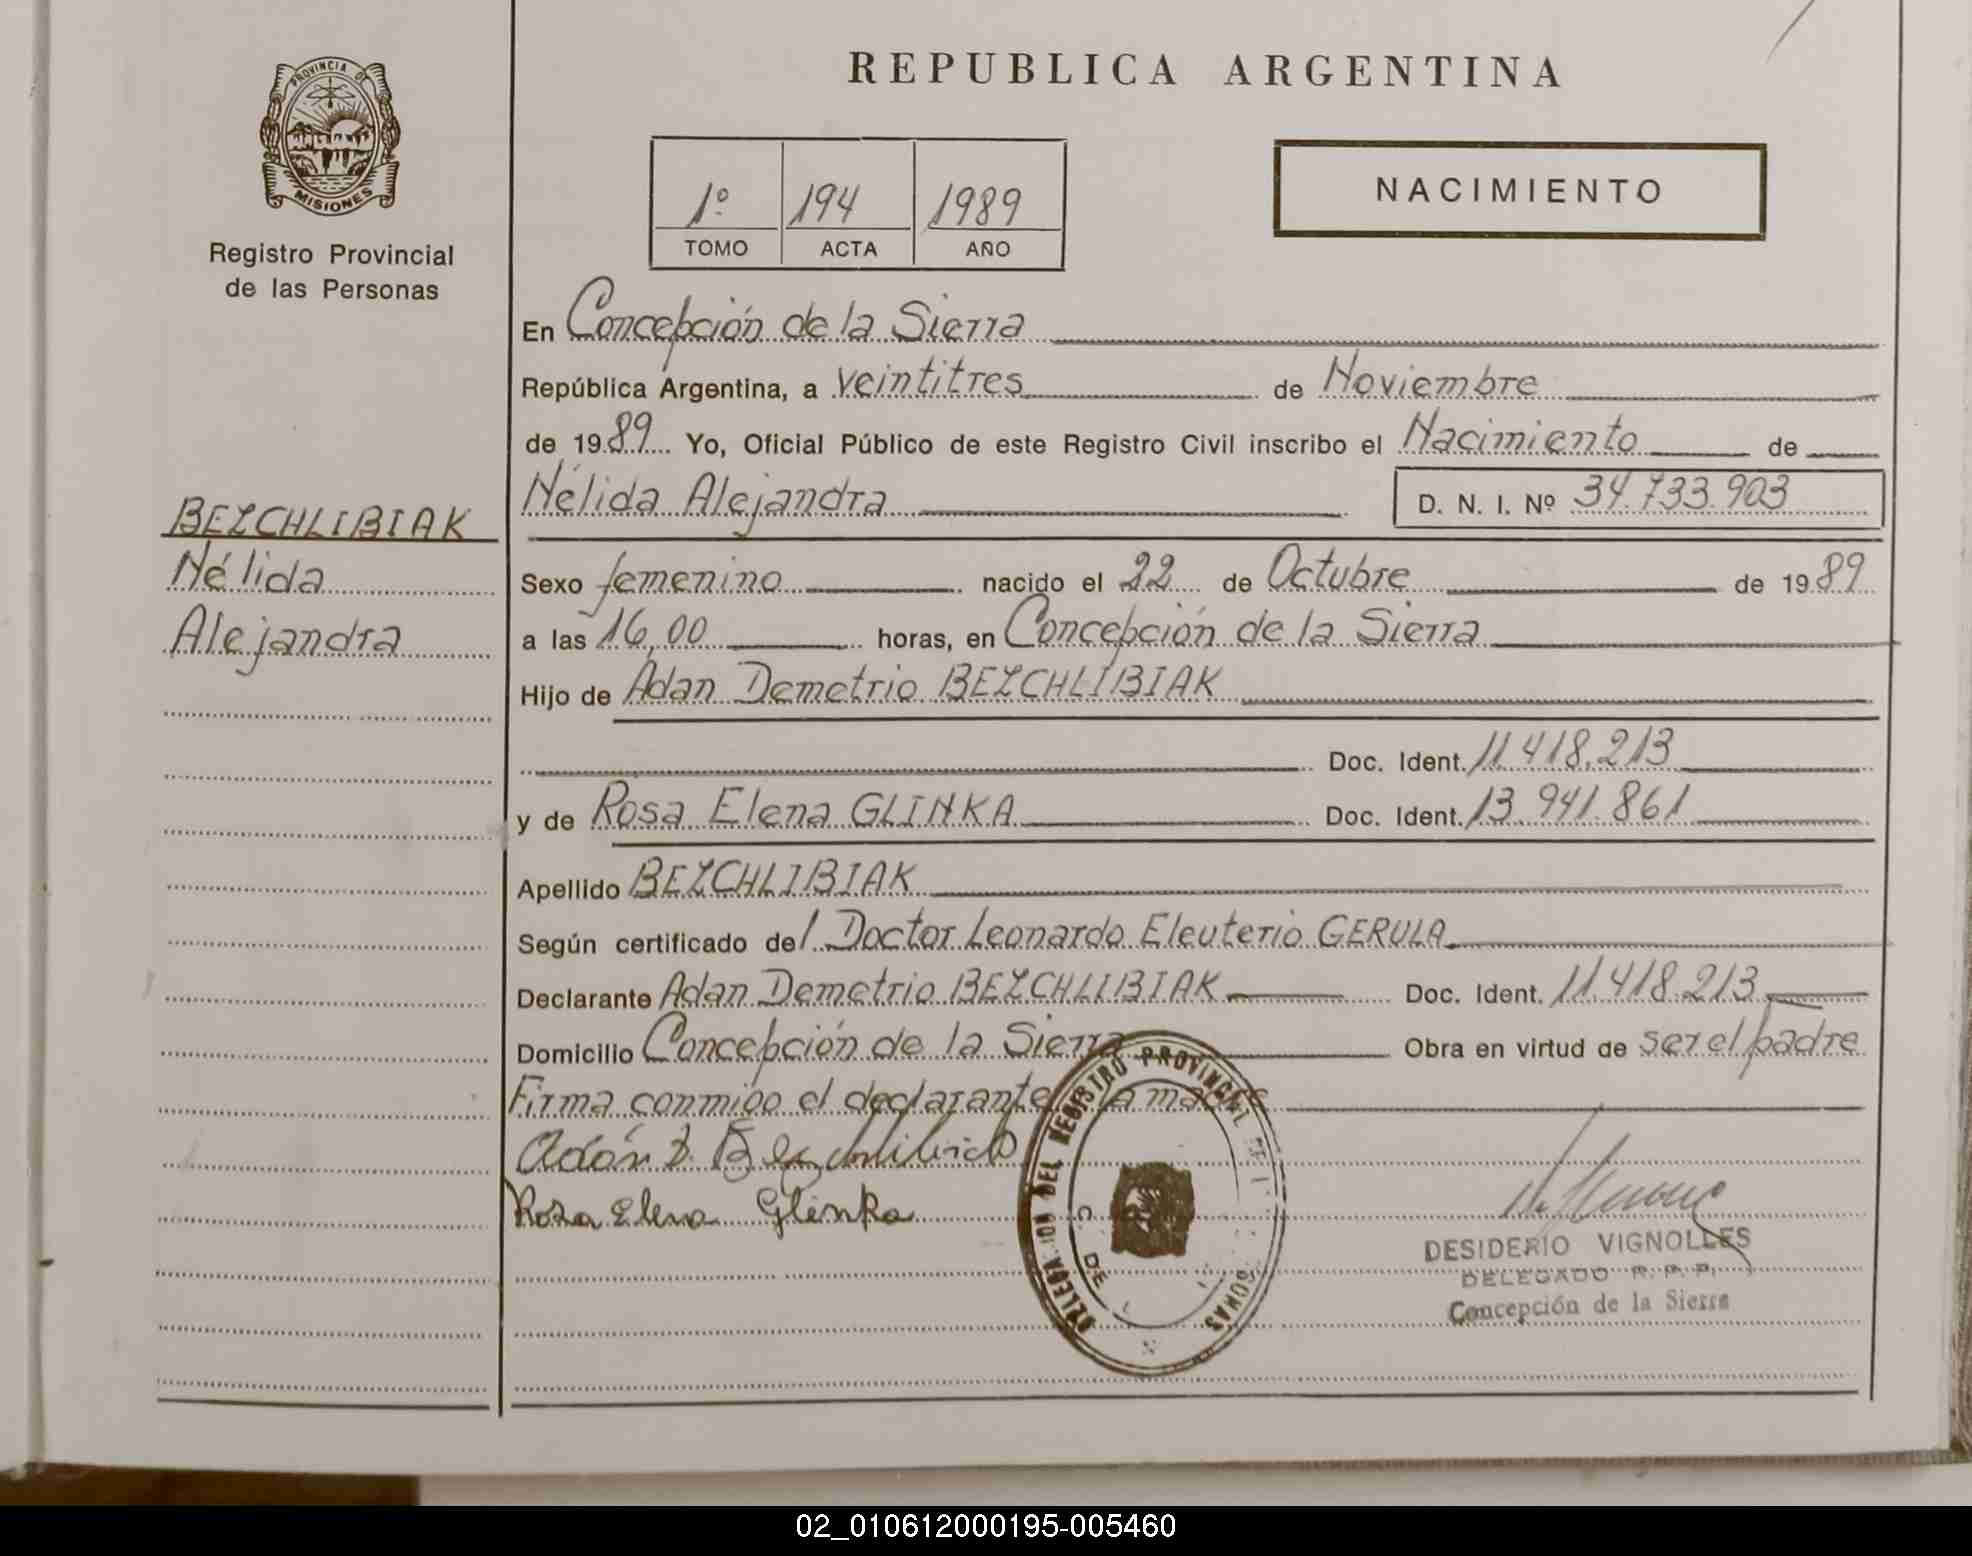 REPUBLICA ARGENTINA
PROVINCIA DE
MISIONES
Registro Provincial
de las Personas
1º 194 1989
TOMO ACTA AÑO
NACIMIENTO
En Concepción de la Sierra
República Argentina, a veintitres de Noviembre
de 1989 Yo, Oficial Público de este Registro Civil inscribo el Nacimiento de
Nélida Alejandra D. N. I. Nº 34.733.903
BEZCHLIBIAK
Nélida
Alejandra
Sexo femenino nacido el 22 de Octubre de 1989
a las 16,00 horas, en Concepción de la Sierra
Hijo de Adan Demetrio BEZCHLIBIAK
Doc. Ident. 11.418.213
y de Rosa Elena GLINKA Doc. Ident. 13.941.861
Apellido BEZCHLIBIAK
Según certificado del Doctor Leonardo Eleuterio GERULA
Declarante Adan Demetrio BEZCHLIBIAK Doc. Ident. 11.418.213
Domicilio Concepción de la Sierra Obra en virtud de ser el padre
Firma conmigo el declarante la madre
Adán D. Bezchlibiak
Rosa Elena Glinka
DELEGACION DEL REGISTRO PROVINCIAL DE
DESIDERIO VIGNOLLES
DELEGADO R. P. P.
Concepción de la Sierra
02_010612000195-005460